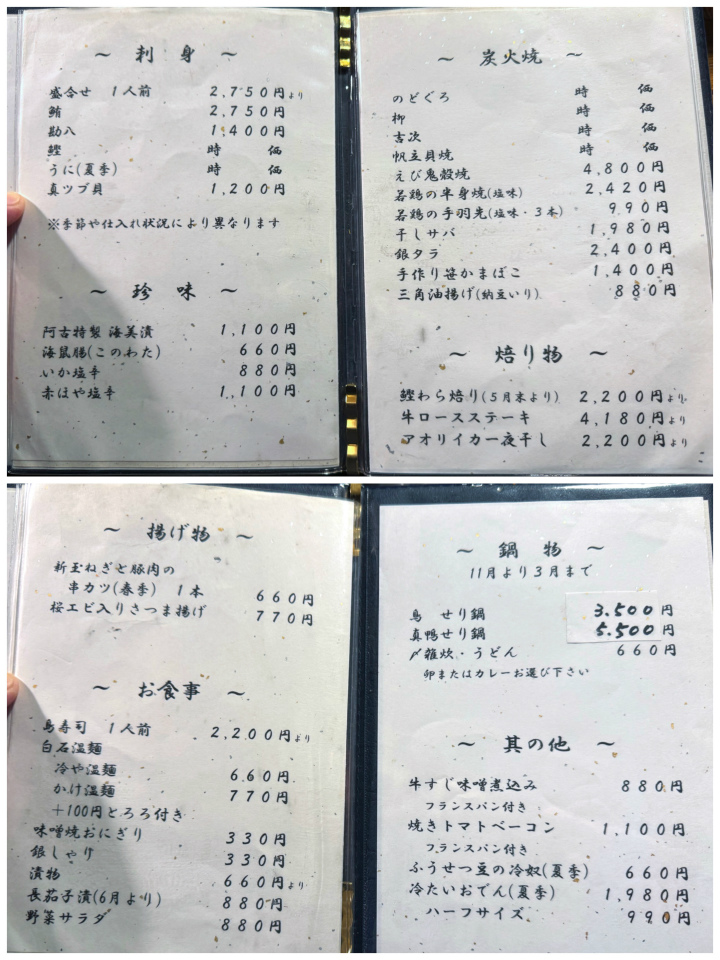 ～ 刺 身 ～
盛合せ 1人前 2,750円より
鮪 2,750円
勘八 1,400円
鰹 時 価
うに(夏季) 時 価
真ツブ貝 1,200円
※季節や仕入れ状況により異なります
～ 珍 味 ～
阿古特製 海美漬 1,100円
海鼠腸(このわた) 660円
いか塩辛 880円
赤ほや塩辛 1,100円
～ 炭火焼 ～
のどぐろ 時 価
柳 時 価
吉次 時 価
帆立貝焼 時 価
えび鬼殻焼 4,800円
若鶏の半身焼(塩味) 2,420円
若鶏の手羽先(塩味・3本) 990円
干しサバ 1,980円
銀タラ 2,400円
手作り笹かまぼこ 1,400円
三角油揚げ(納豆いり) 880円
～ 焙り物 ～
鰹わら焙り(5月末より) 2,200円より
牛ロースステーキ 4,180円より
アオリイカ一夜干し 2,200円より
～ 揚げ物 ～
新玉ねぎと豚肉の
串カツ(春季) 1本 660円
桜エビ入りさつま揚げ 770円
～ お食事 ～
鳥寿司 1人前 2,200円より
白石温麺
冷や温麺 660円
かけ温麺 770円
＋100円とろろ付き
味噌焼おにぎり 330円
銀しゃり 330円
漬物 660円より
長茄子漬(6月より) 880円
野菜サラダ 880円
～ 鍋 物 ～
11月より3月まで
鳥 せり鍋 3.500円
真鴨せり鍋 5.500円
〆雑炊・うどん 660円
卵またはカレーお選び下さい
～ 其の他 ～
牛すじ味噌煮込み 880円
フランスパン付き
焼きトマトベーコン 1,100円
フランスパン付き
ふうせつ豆の冷奴(夏季) 660円
冷たいおでん(夏季) 1,980円
ハーフサイズ 990円